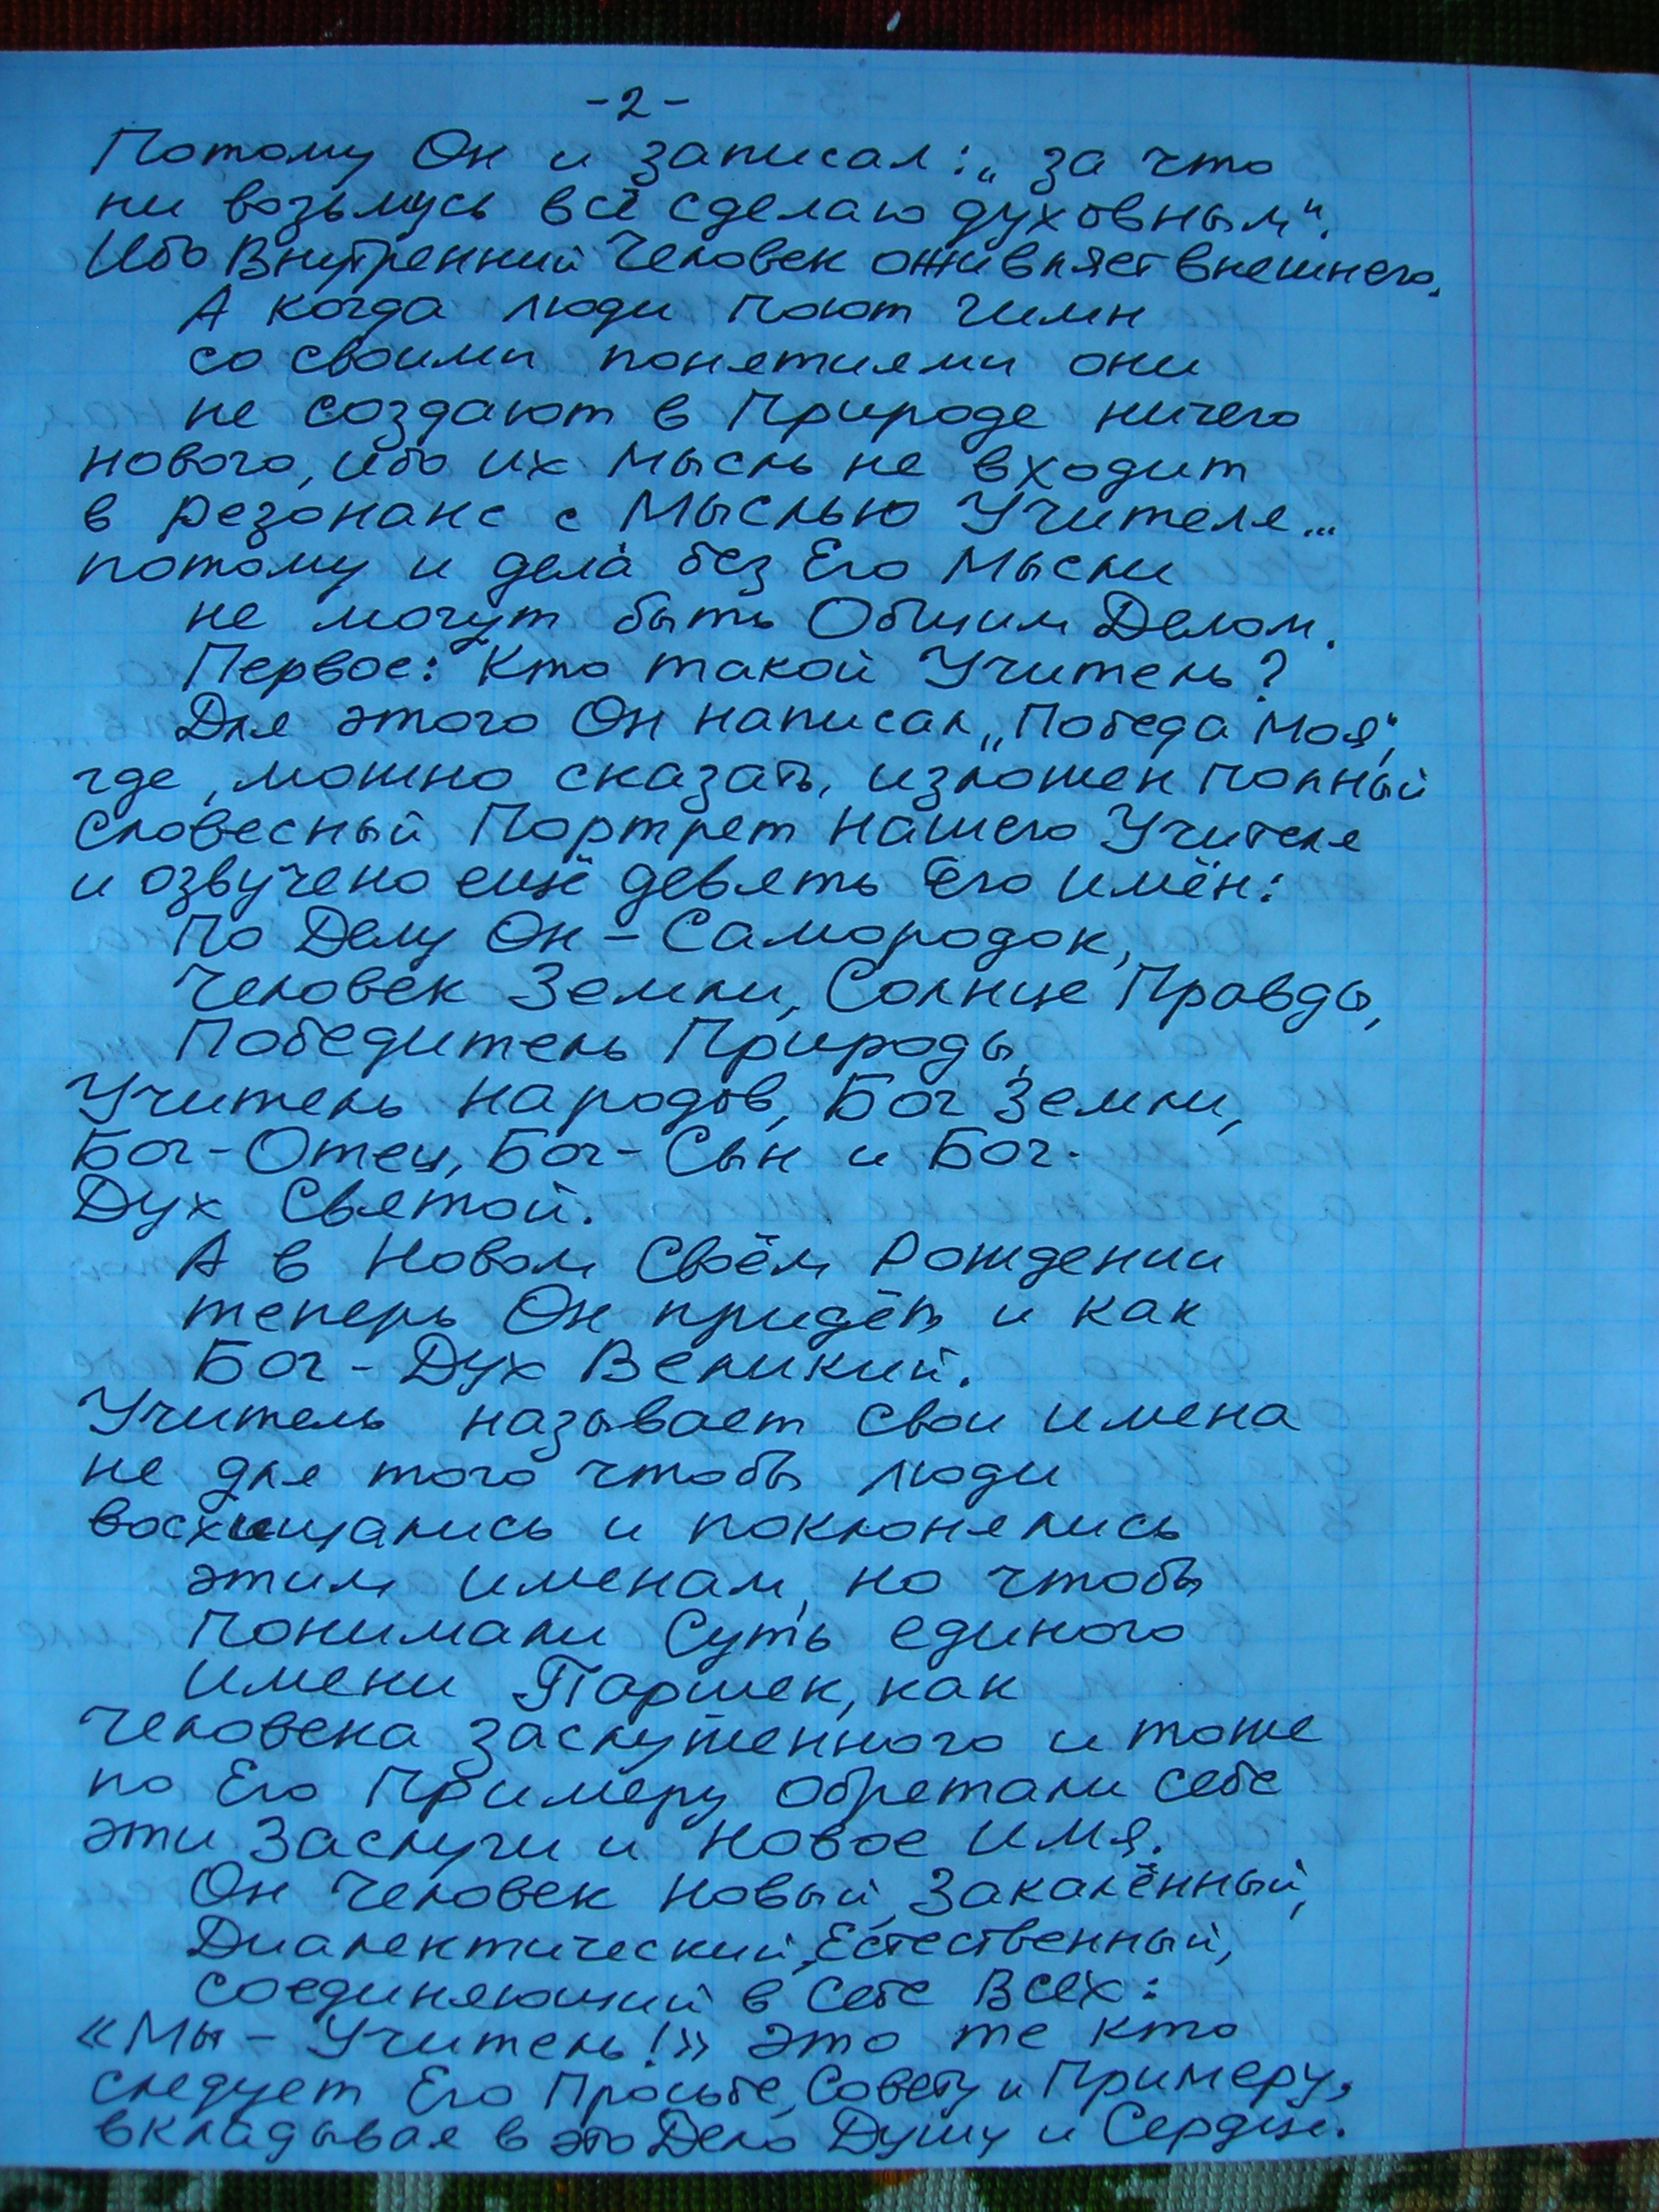 -2-
Потому Он и записал: „за что
ни возьмусь всё сделаю духовным".
Ибо Внутренний Человек оживляет внешнего.
А когда люди поют Гимн
со своими понятиями они
не создают в Природе ничего
нового, ибо их мысль не входит
в резонанс с Мыслью Учителя...
потому и дела без Его Мысли
не могут быть Общим Делом.
Первое: Кто такой Учитель?
Для этого Он написал „Победа Моя",
где, можно сказать, изложен полный
словесный Портрет Нашего Учителя
и озвучено ещё девять Его имён:
По Делу Он – Самородок,
Человек Земли, Солнце Правды,
Победитель Природы,
Учитель народов, Бог Земли,
Бог-Отец, Бог-Сын и Бог-
Дух Святой.
А в Новом Своём Рождении
теперь Он придёт и как
Бог-Дух Великий.
Учитель называет свои имена
не для того чтобы люди
восхищались и поклонялись
этим именам, но чтобы
понимали Суть единого
имени Паршек, как
Человека заслуженного и тоже
по Его Примеру обретали себе
эти Заслуги и новое имя.
Он Человек Новый, Закалённый,
Диалектический, Естественный,
соединяющий в Себе Всех:
«Мы – Учитель!» это те кто
следует Его Просьбе, Совету и Примеру,
вкладывая в это Дело Душу и Сердце.